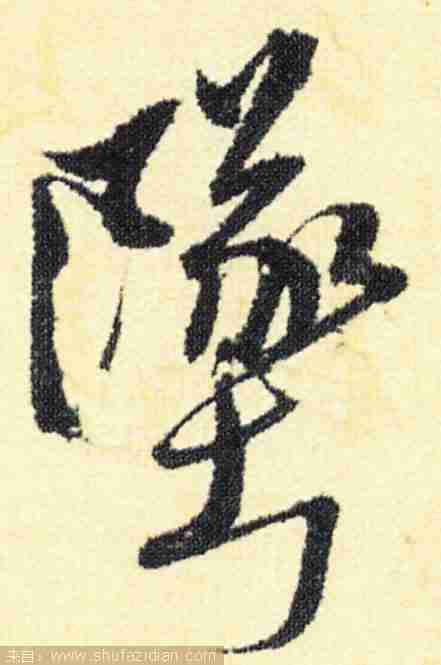 墜
来自：www.shufazidian.com